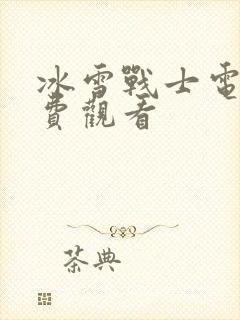 冰雪戰士電
費觀看
茶典